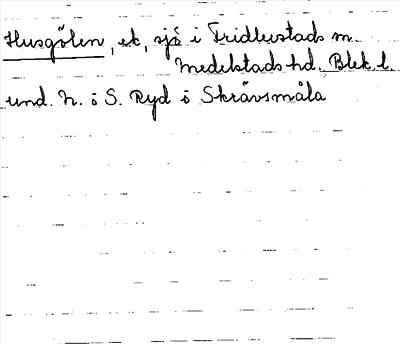 Husgölen, ek, sjö i Fridlevstads m.
Medelstads hd. Blek. l.
und. N. o S. Ryd o Skrävsmåla